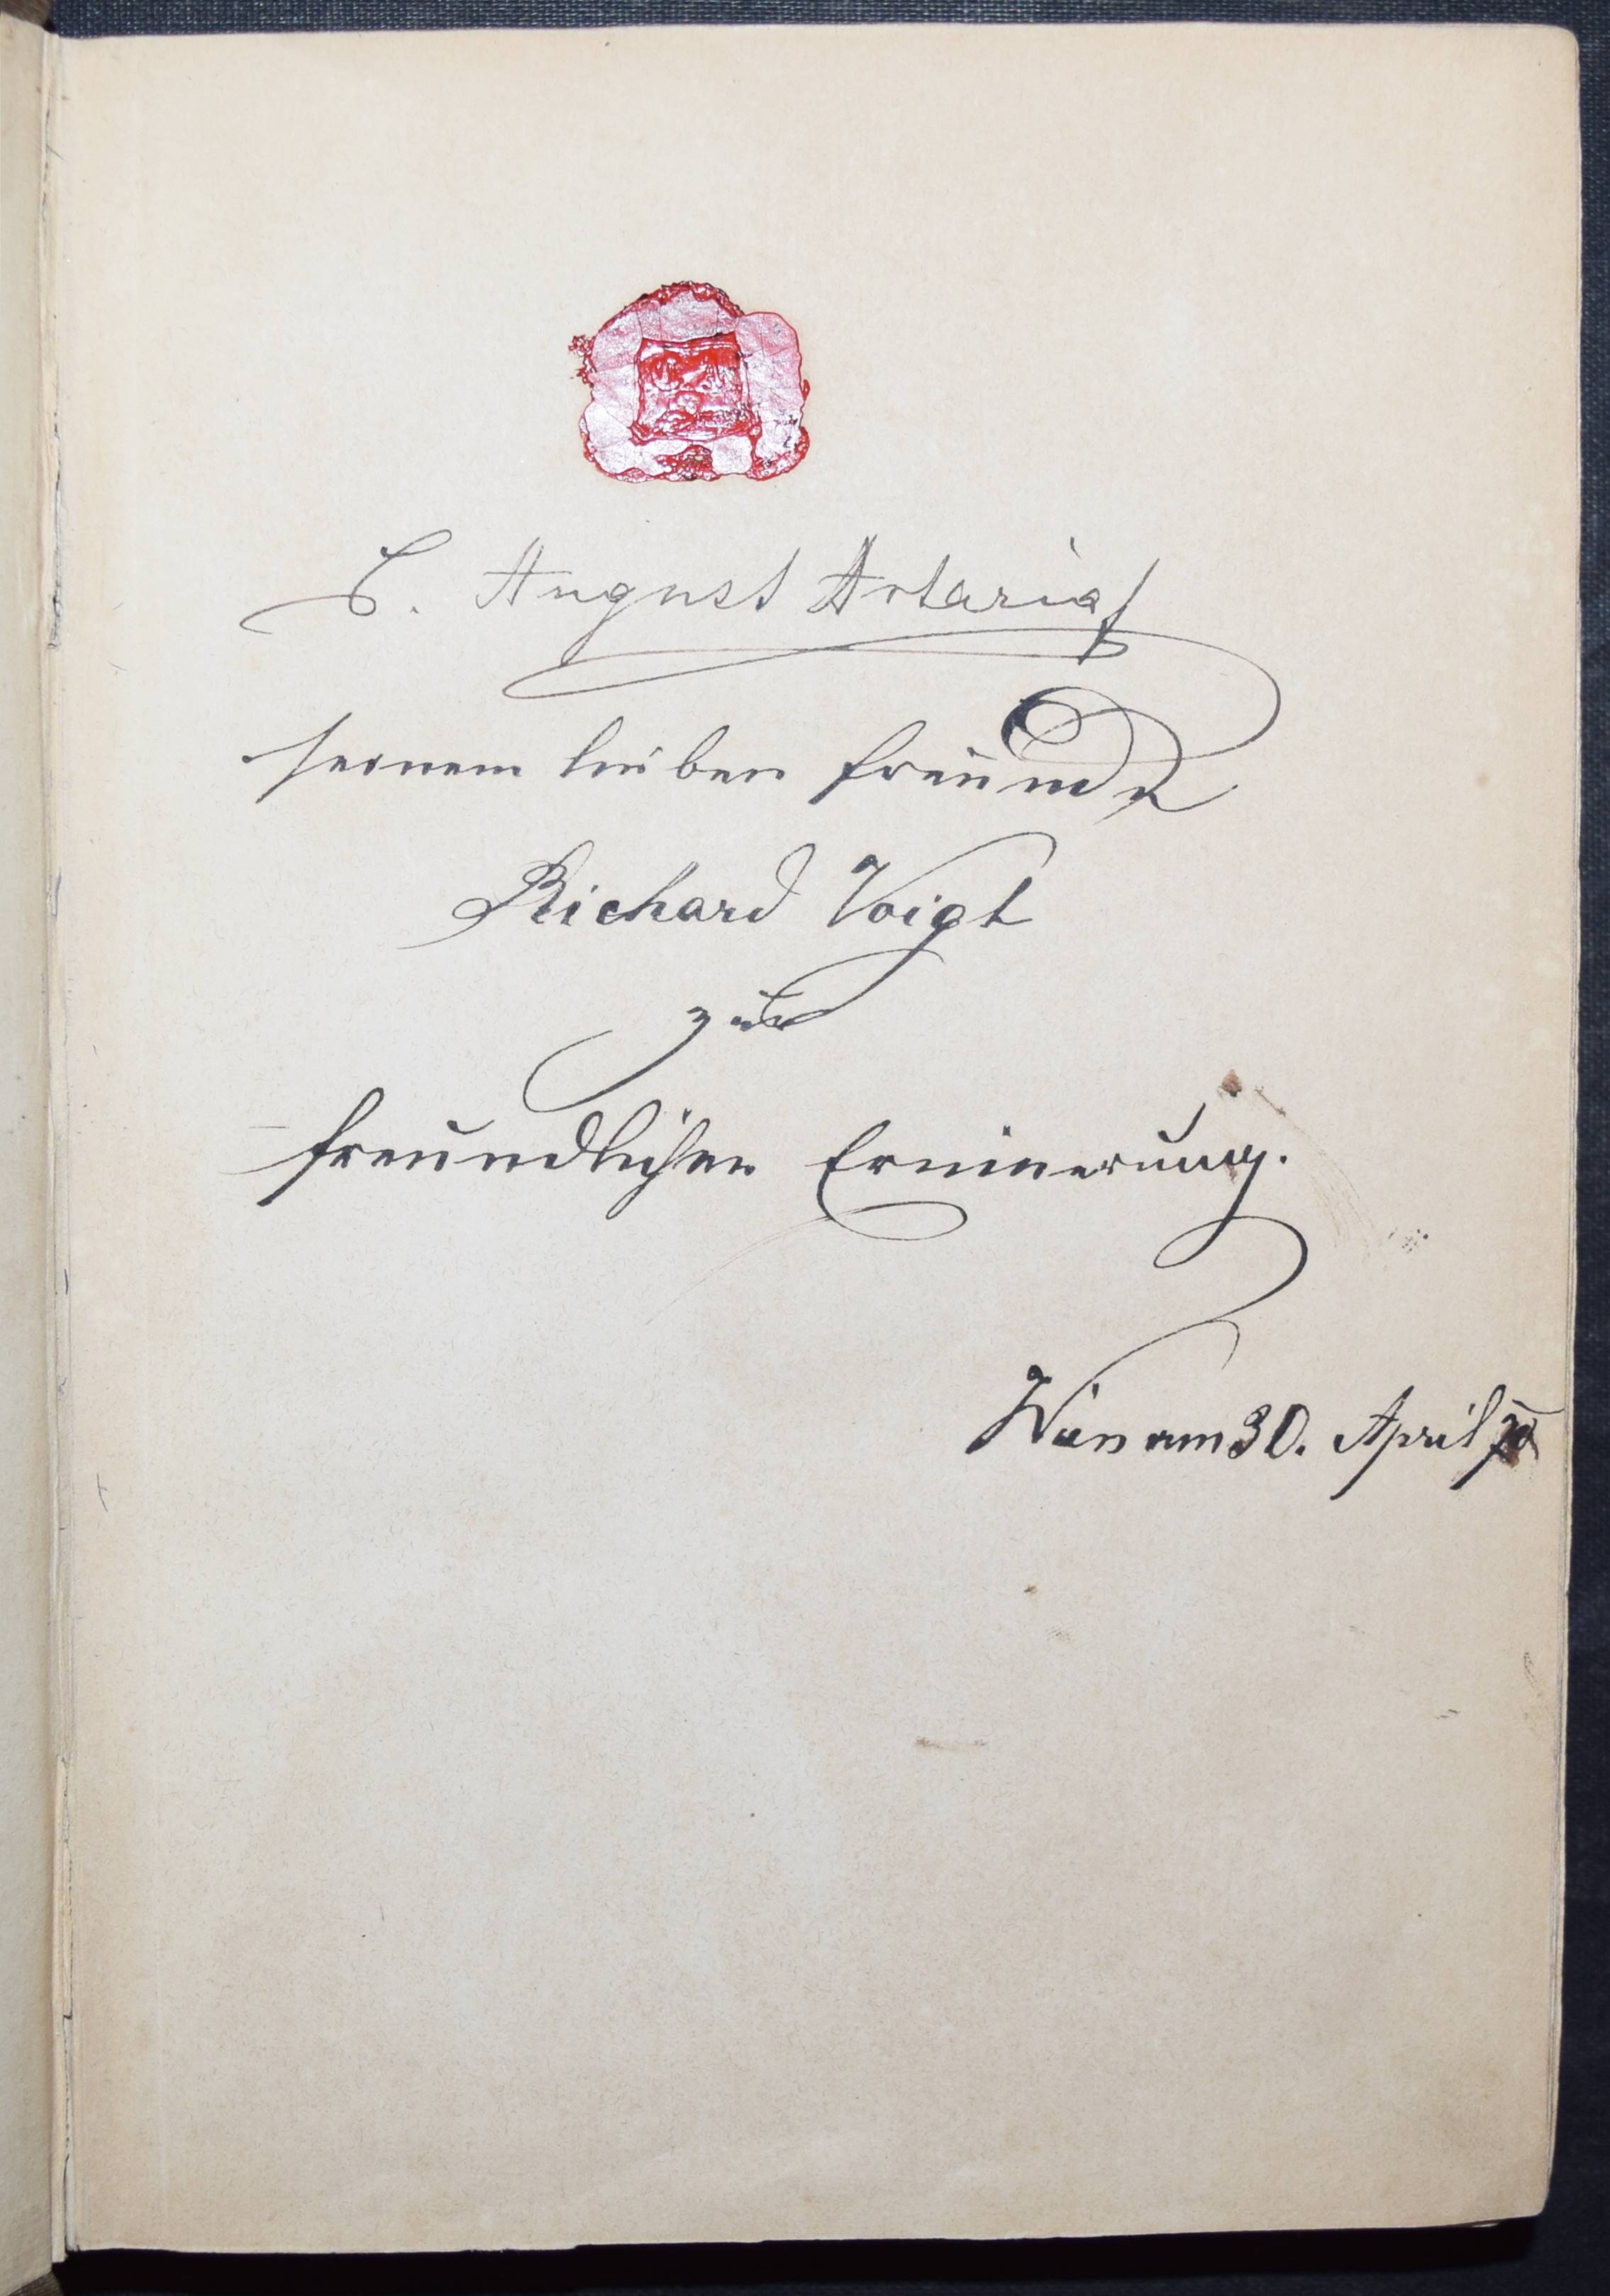 C. August Artaria
seinem lieben Freunde
Richard Voigt
zur
freundlichen Erinnerung.
Wien am 30. April